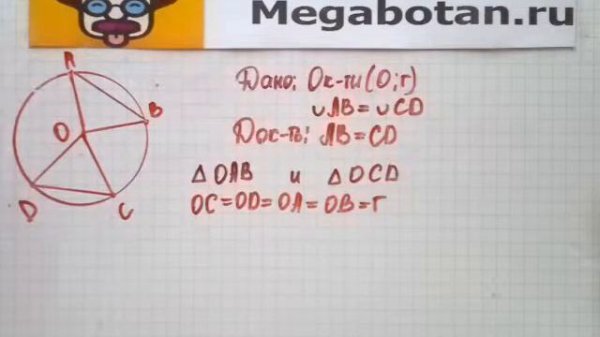 Megabotan.ru
A
B
O
D
C
Дано: Ок-ти(O;r)
∪AB=∪CD
Док-ть: AB=CD
△OAB и △OCD
OC=OD=OA=OB=r